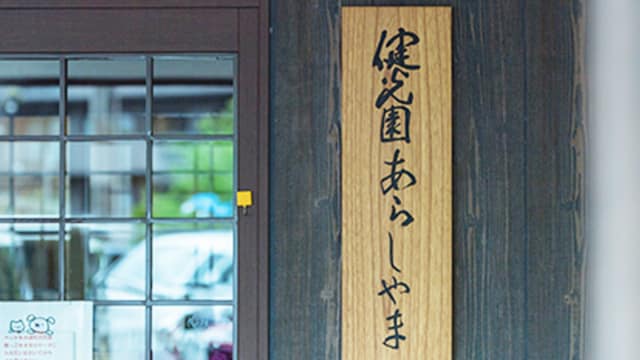 健光園あらしやま